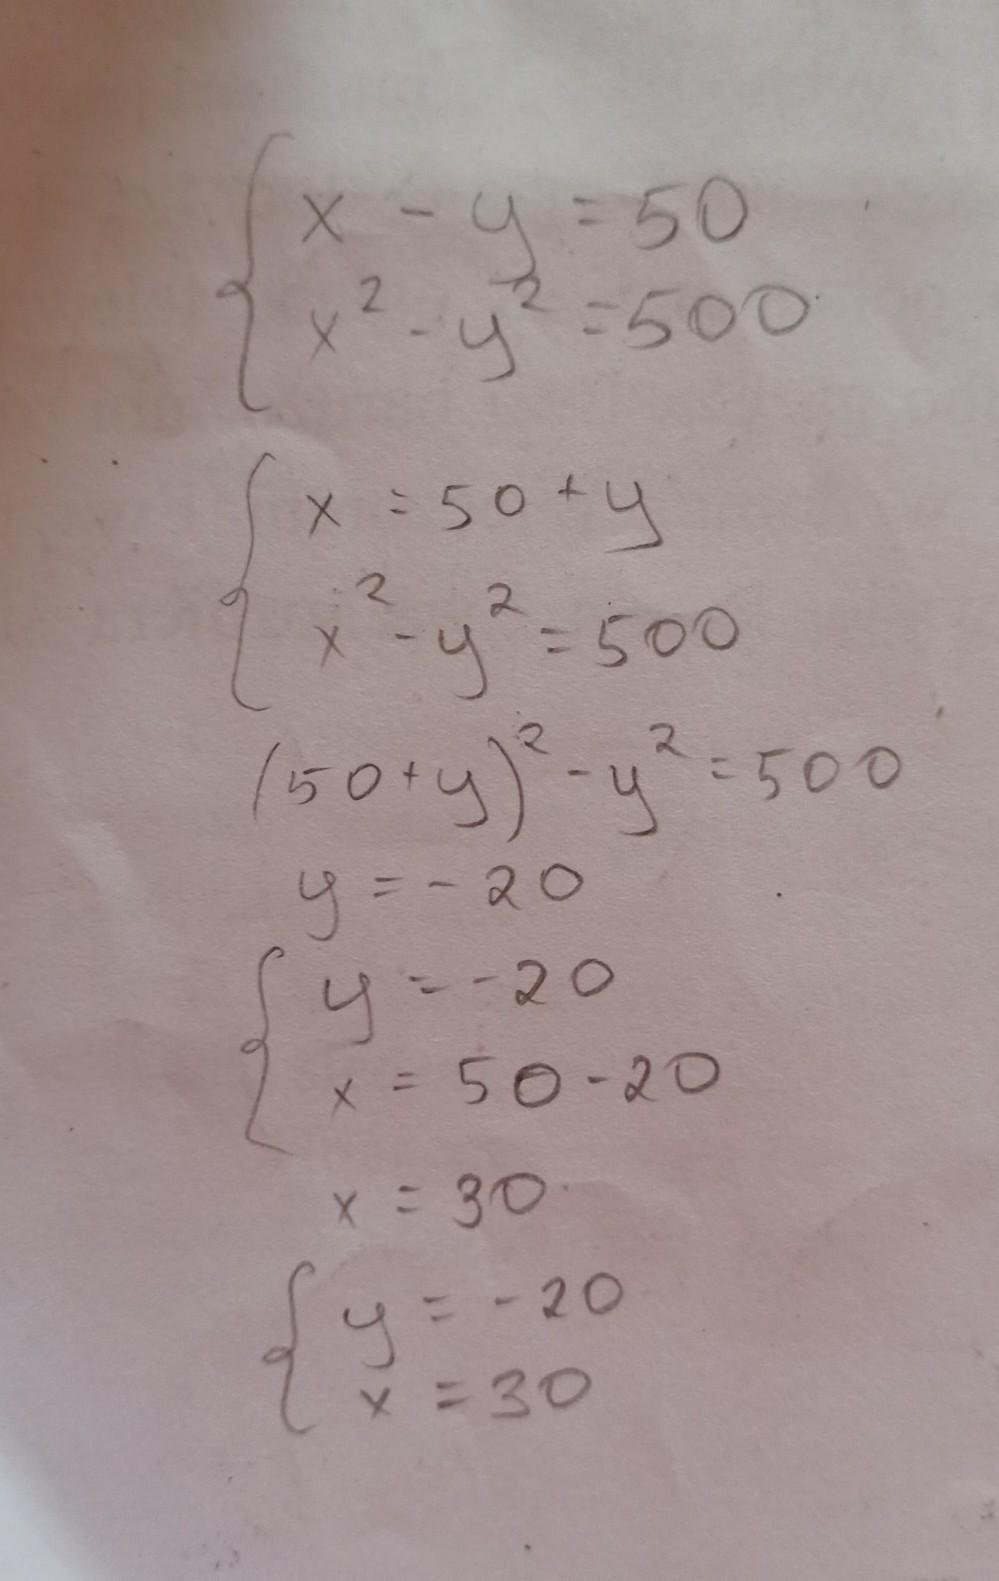 x - y = 50
x² - y² = 500
x = 50 + y
x² - y² = 500
(50+y)² - y² = 500
y = -20
y = -20
x = 50 - 20
x = 30
y = -20
x = 30